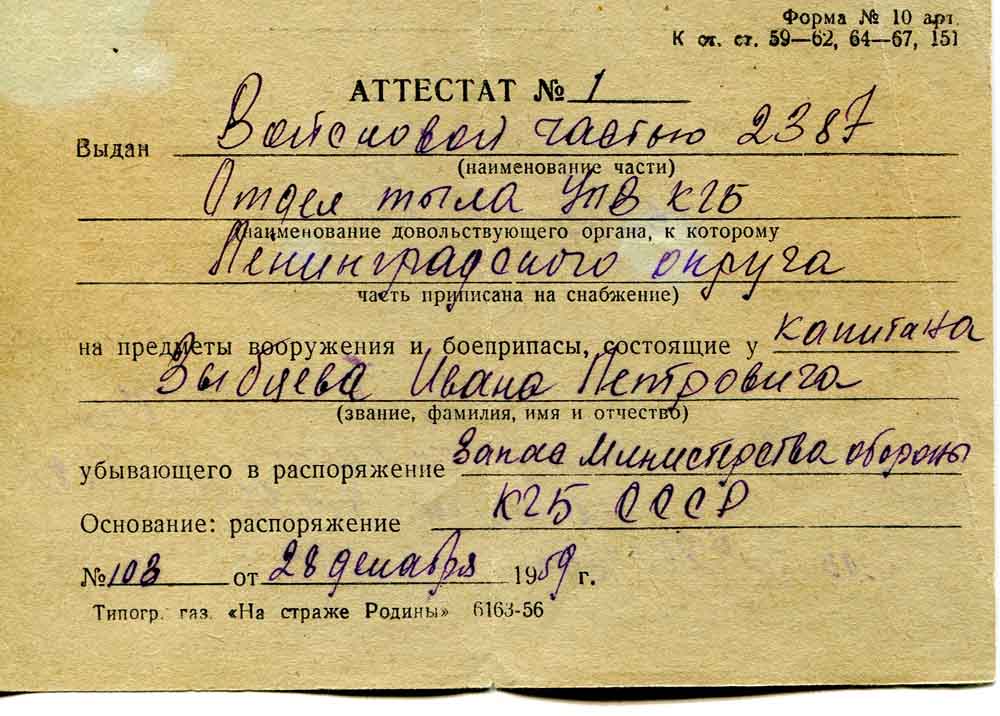 Форма № 10 арт.
К ст. ст. 59—62, 64—67, 151
АТТЕСТАТ № 1
Выдан Войсковой частью 2387
(наименование части)
Отдел тыла УПВ КГБ
(наименование довольствующего органа, к которому
Ленинградского округа
часть приписана на снабжение)
на предметы вооружения и боеприпасы, состоящие у капитана
Зыбцева Ивана Петровича
(звание, фамилия, имя и отчество)
убывающего в распоряжение запас Министерства обороны
Основание: распоряжение КГБ СССР
№ 103 от 28 декабря 1959 г.
Типогр. газ. «На страже Родины» 6163-56